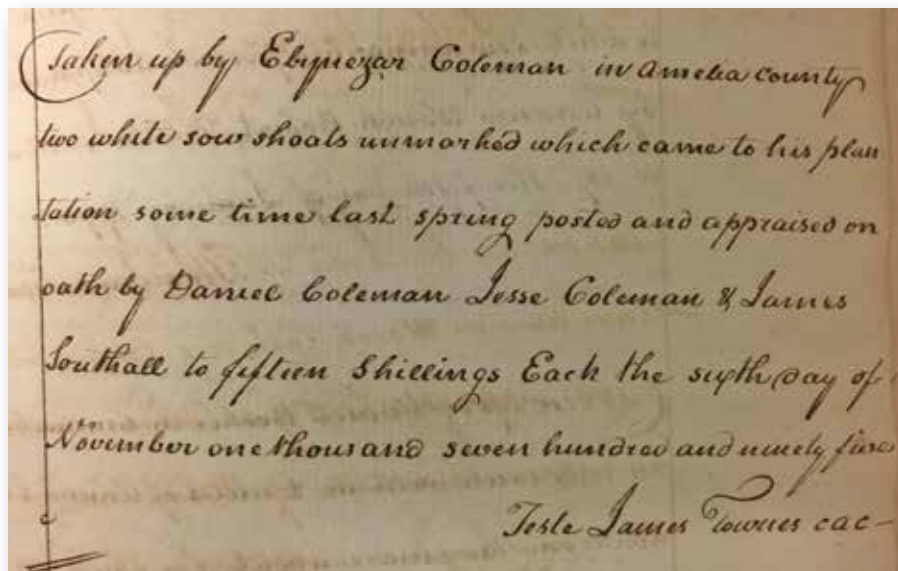 Taken up by Ebynezar Coleman in Amelia County
two white sow shoats unmarked which came to his plan
tation some time last spring posted and appraised on
oath by Daniel Coleman Jesse Coleman & James
Southall to fifteen Shillings Each the sixth day of
November one thousand seven hundred and ninety five
Teste James Townes cac